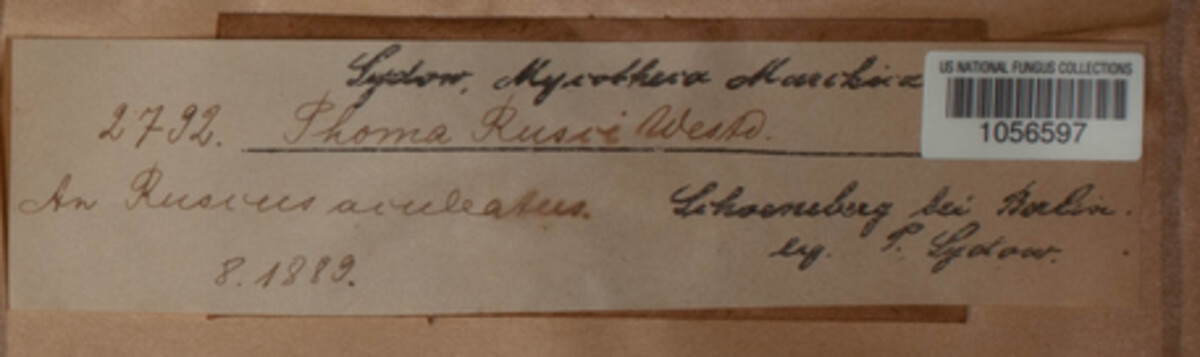 Sydow, Mycotheca Marchica
US NATIONAL FUNGUS COLLECTIONS
1056597
2792. Phoma Rusci Westd.
An Ruscus aculeatus. Schoeneberg bei Berlin.
8.1889. leg. P. Sydow.